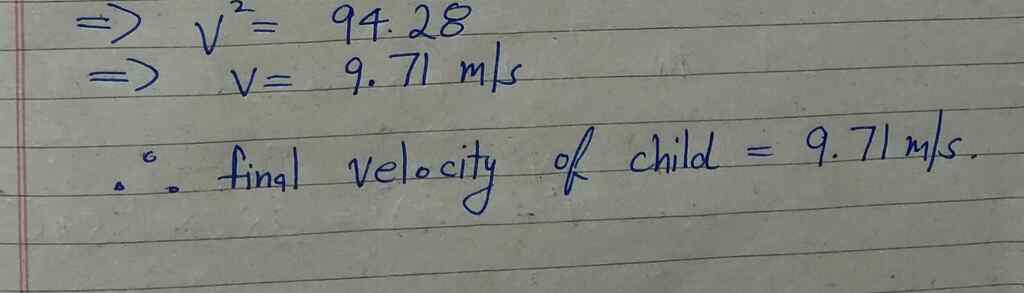 => v² = 94.28
=> v = 9.71 m/s
∴ final velocity of child = 9.71 m/s.